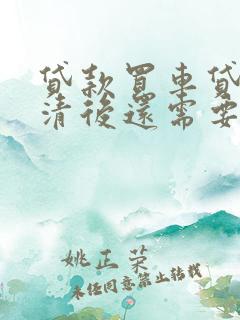 貸款買車貸
清後還需要
姚正荣
未经同意禁止转载